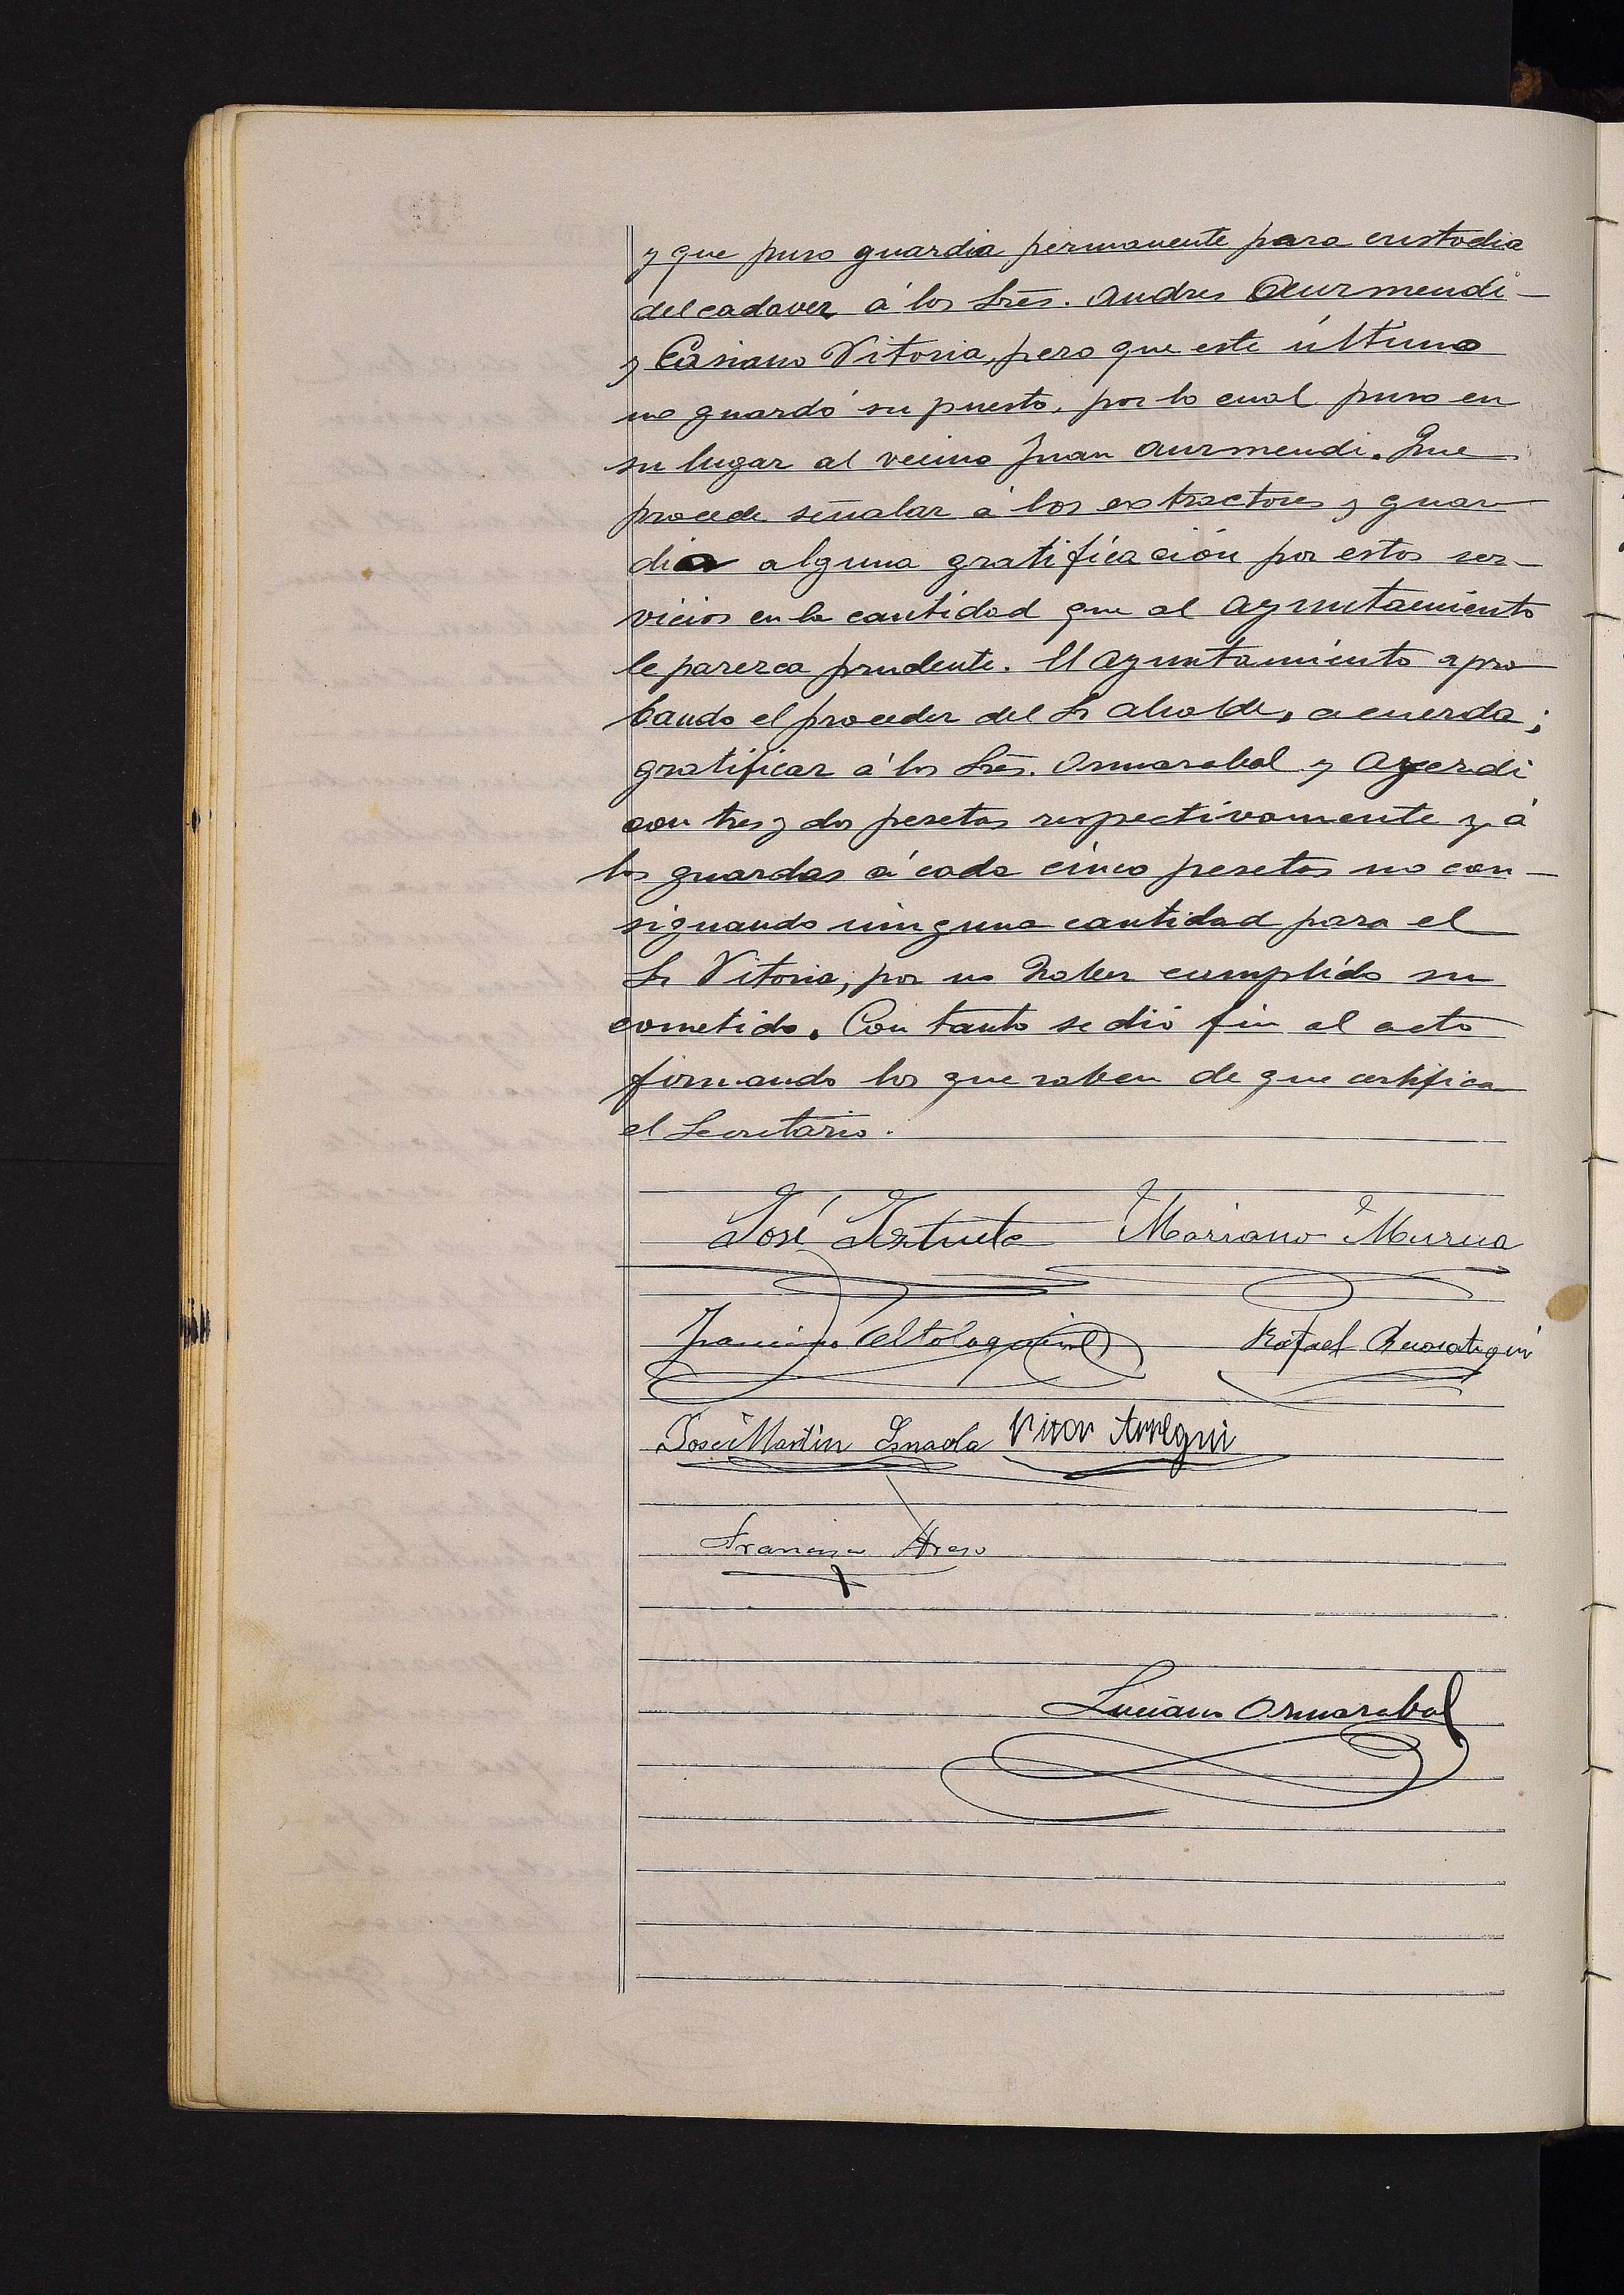 y que puso guardia permanente para custodia
del cadaver á los Srēs. Andres Aurmendi
y Casiano Vitoria, pero que este último
no guardó su puesto, por lo cual puso en
su lugar al vecino Juan Aurmendi. Que
procede señalar á los extractores y guar
dia alguna gratificación por estos ser-
vicios en la cantidad que al Ayuntamiento
le parezca prudente. El Ayuntamiento apro
bando el proceder del Sr Alcalde, acuerda;
gratificar á los Srēs. Ormazabal y Ayerdi
con tres y dos pesetas respectivamente y á
los guardas á cada cinco pesetas no con-
signando ninguna cantidad para el
Sr Vitoria, por no haber cumplido su
cometido. Con tanto se dió fin al acto
firmando los que saben de que certifica
el Secretario.
José Iztueta Mariano Murua
Francisco Altolaguirre Rafael
José Martin Imaola
Francisco
Luciano Ormazabal